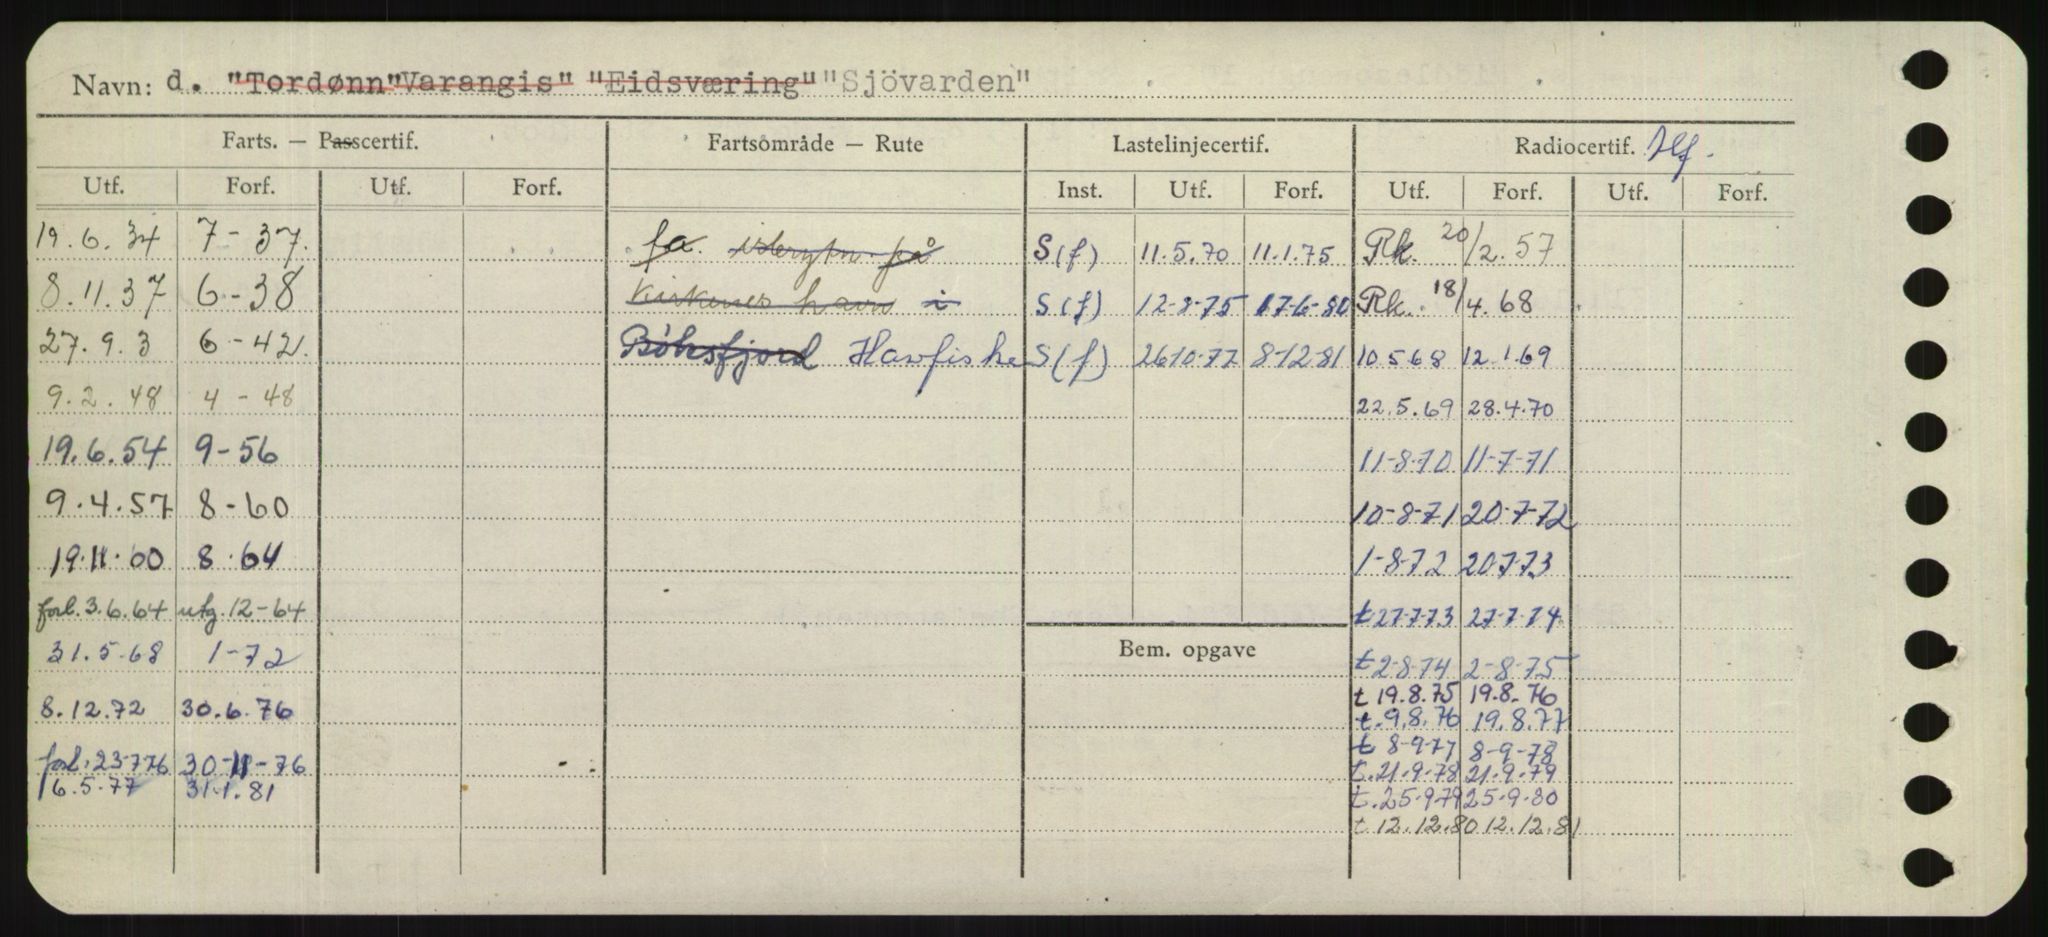 Navn: d. "Tordønn" "Varangis" "Eidsværing" "Sjövarden"
Farts. — Passcertif. Fartsområde — Rute Lastelinjecertif. Radiocertif. Tlf.
Utf. Forf. Utf. Forf. Inst. Utf. Forf. Utf. Forf. Utf. Forf.
19.6.34 7-37. fa. på S(f) 11.5.70 11.1.75 Rk. 20/2.57
8.11.37 6-38 Kirkenes havn i S(f) 12-8-75 17-6-80 Rk. 18/4.68
27.9.3 6-42. Bøksfjord Havfiske S(f) 26-10-77 8-12-81 10.5.68 12.1.69
9.2.48 4-48 22.5.69 28.4.70
19.6.54 9-56 11-8-70 11-7-71
9.4.57 8-60 10-8-71 20-7-72
19.11.60 8.64 1-8-72 20.7.73
forl. 3.6.64 utg. 12-64 t 27-7-73 27-7-74
31.5.68 1-72 Bem. opgave t 2-8-74 2-8-75
8.12.72 30.6.76 t 19.8.75 19.8.76
t. 9.8.76 19.8.77
t 8-9-77 8-9-78
forl. 23-7-76 30-11-76 t. 21.9.78 21.9.79
16.5.77 31.1.81 t. 25.9.79 25.9.80
t 12.12.80 12.12.81